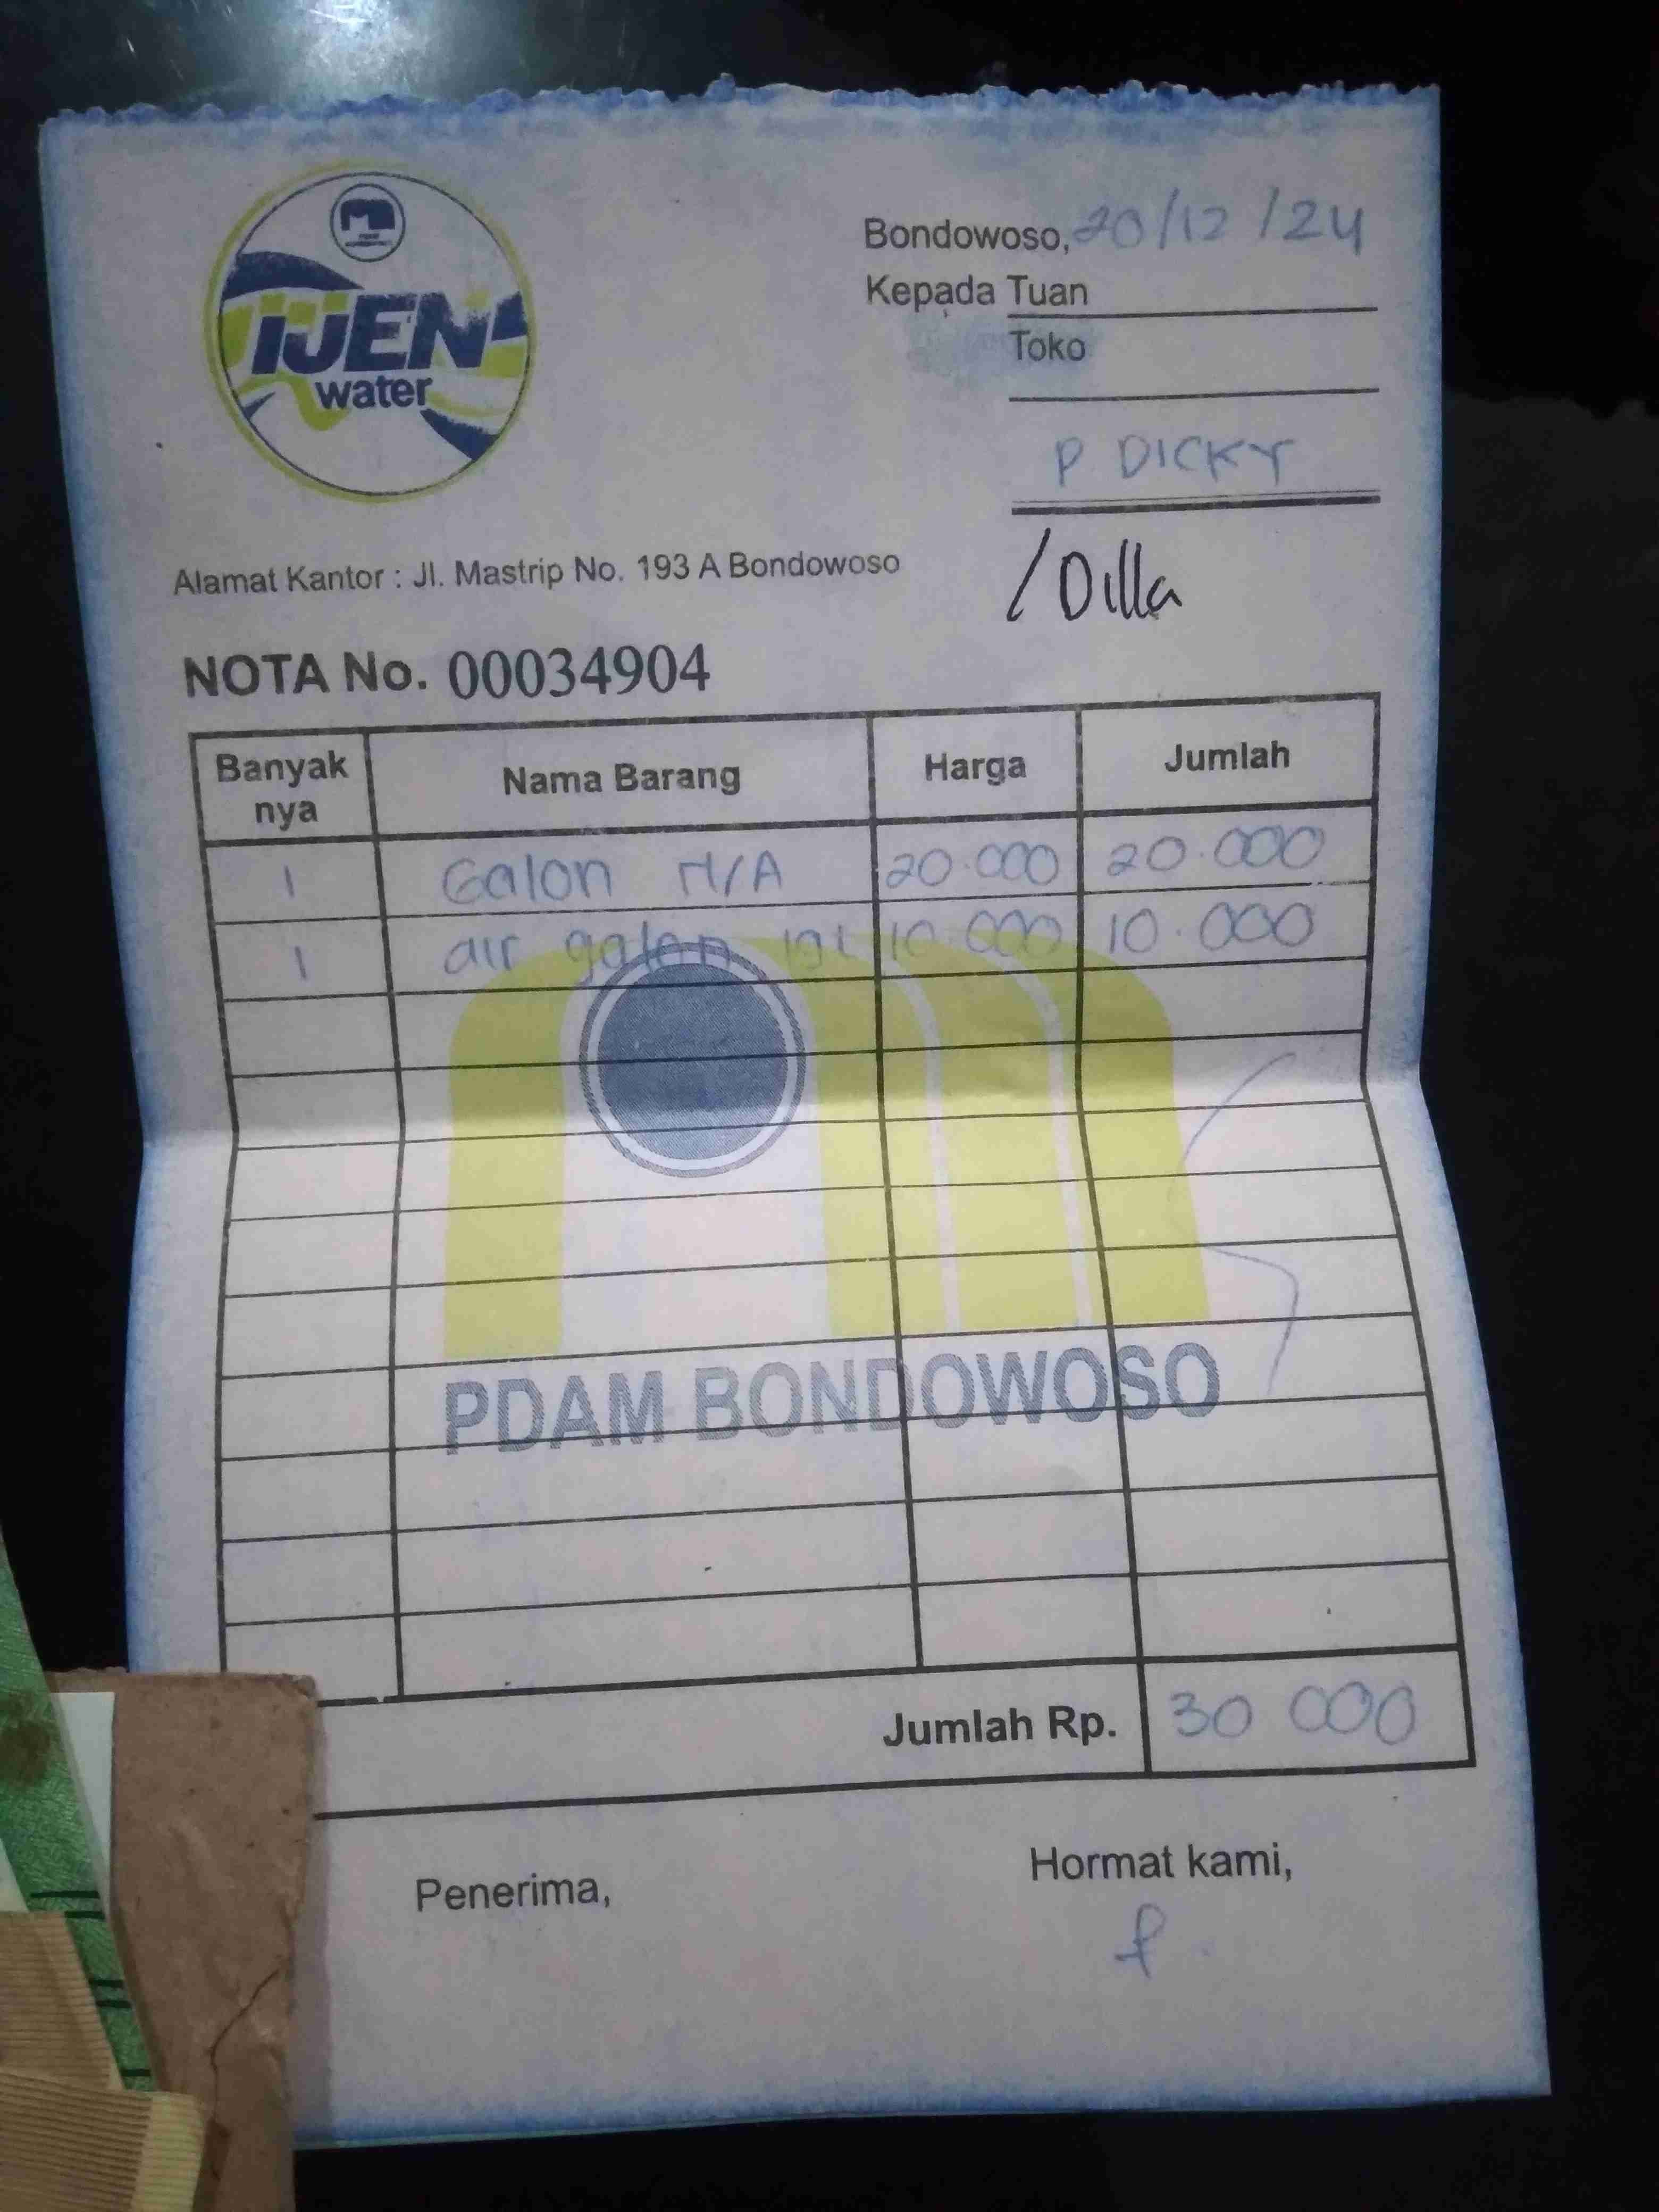 IJEN
water
Bondowoso, 20/12/24
Kepada Tuan
Toko
P. DICKY
/ Dilla
Alamat Kantor : Jl. Mastrip No. 193 A Bondowoso
NOTA No. 00034904
Banyak nya Nama Barang Harga Jumlah
1 Galon H/A 20.000 20.000
1 air galon 19L 10.000 10.000
PDAM BONDOWOSO
Jumlah Rp. 30 000
Penerima, Hormat kami,